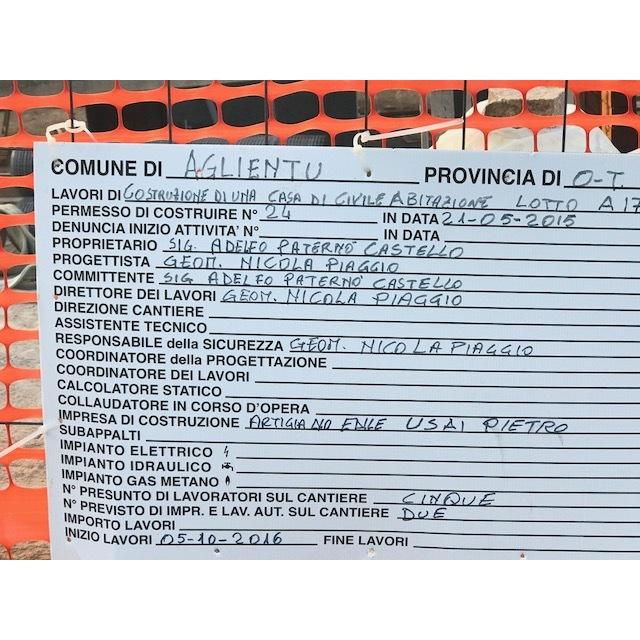 COMUNE DI AGLIENTU PROVINCIA DI O-T.
LAVORI DI COSTRUZIONE DI UNA CASA DI CIVILE ABITAZIONE LOTTO A 17
PERMESSO DI COSTRUIRE N° 24 IN DATA 21-05-2015
DENUNCIA INIZIO ATTIVITA' N° IN DATA
PROPRIETARIO SIG. ADELFO PATERNÒ CASTELLO
PROGETTISTA GEOM. NICOLA PIAGGIO
COMMITTENTE SIG ADELFO PATERNÒ CASTELLO
DIRETTORE DEI LAVORI GEOM. NICOLA PIAGGIO
DIREZIONE CANTIERE
ASSISTENTE TECNICO
RESPONSABILE della SICUREZZA GEOM. NICOLA PIAGGIO
COORDINATORE della PROGETTAZIONE
COORDINATORE DEI LAVORI
CALCOLATORE STATICO
COLLAUDATORE IN CORSO D'OPERA
IMPRESA DI COSTRUZIONE ARTIGIANO EDILE USAI PIETRO
SUBAPPALTI
IMPIANTO ELETTRICO
IMPIANTO IDRAULICO
IMPIANTO GAS METANO
N° PRESUNTO DI LAVORATORI SUL CANTIERE CINQUE
N° PREVISTO DI IMPR. E LAV. AUT. SUL CANTIERE DUE
IMPORTO LAVORI
INIZIO LAVORI 05-10-2016 FINE LAVORI